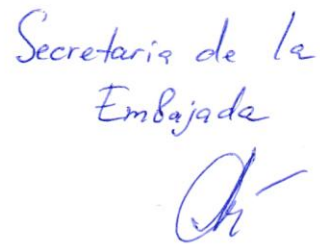 Secretaria de la
Embajada